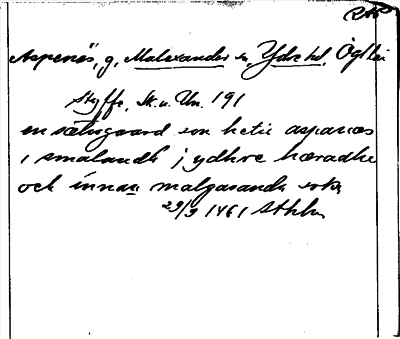 Aspenäs, g, Malexander sn, Ydre hd, Ögl län
Styffe, Sk. u. Un. 191
en sætisgaard som hetir aspanæs
i smalandh j ydhre hæradhe
och innan malgxsandz sokn
29/3 1461 Sthlm